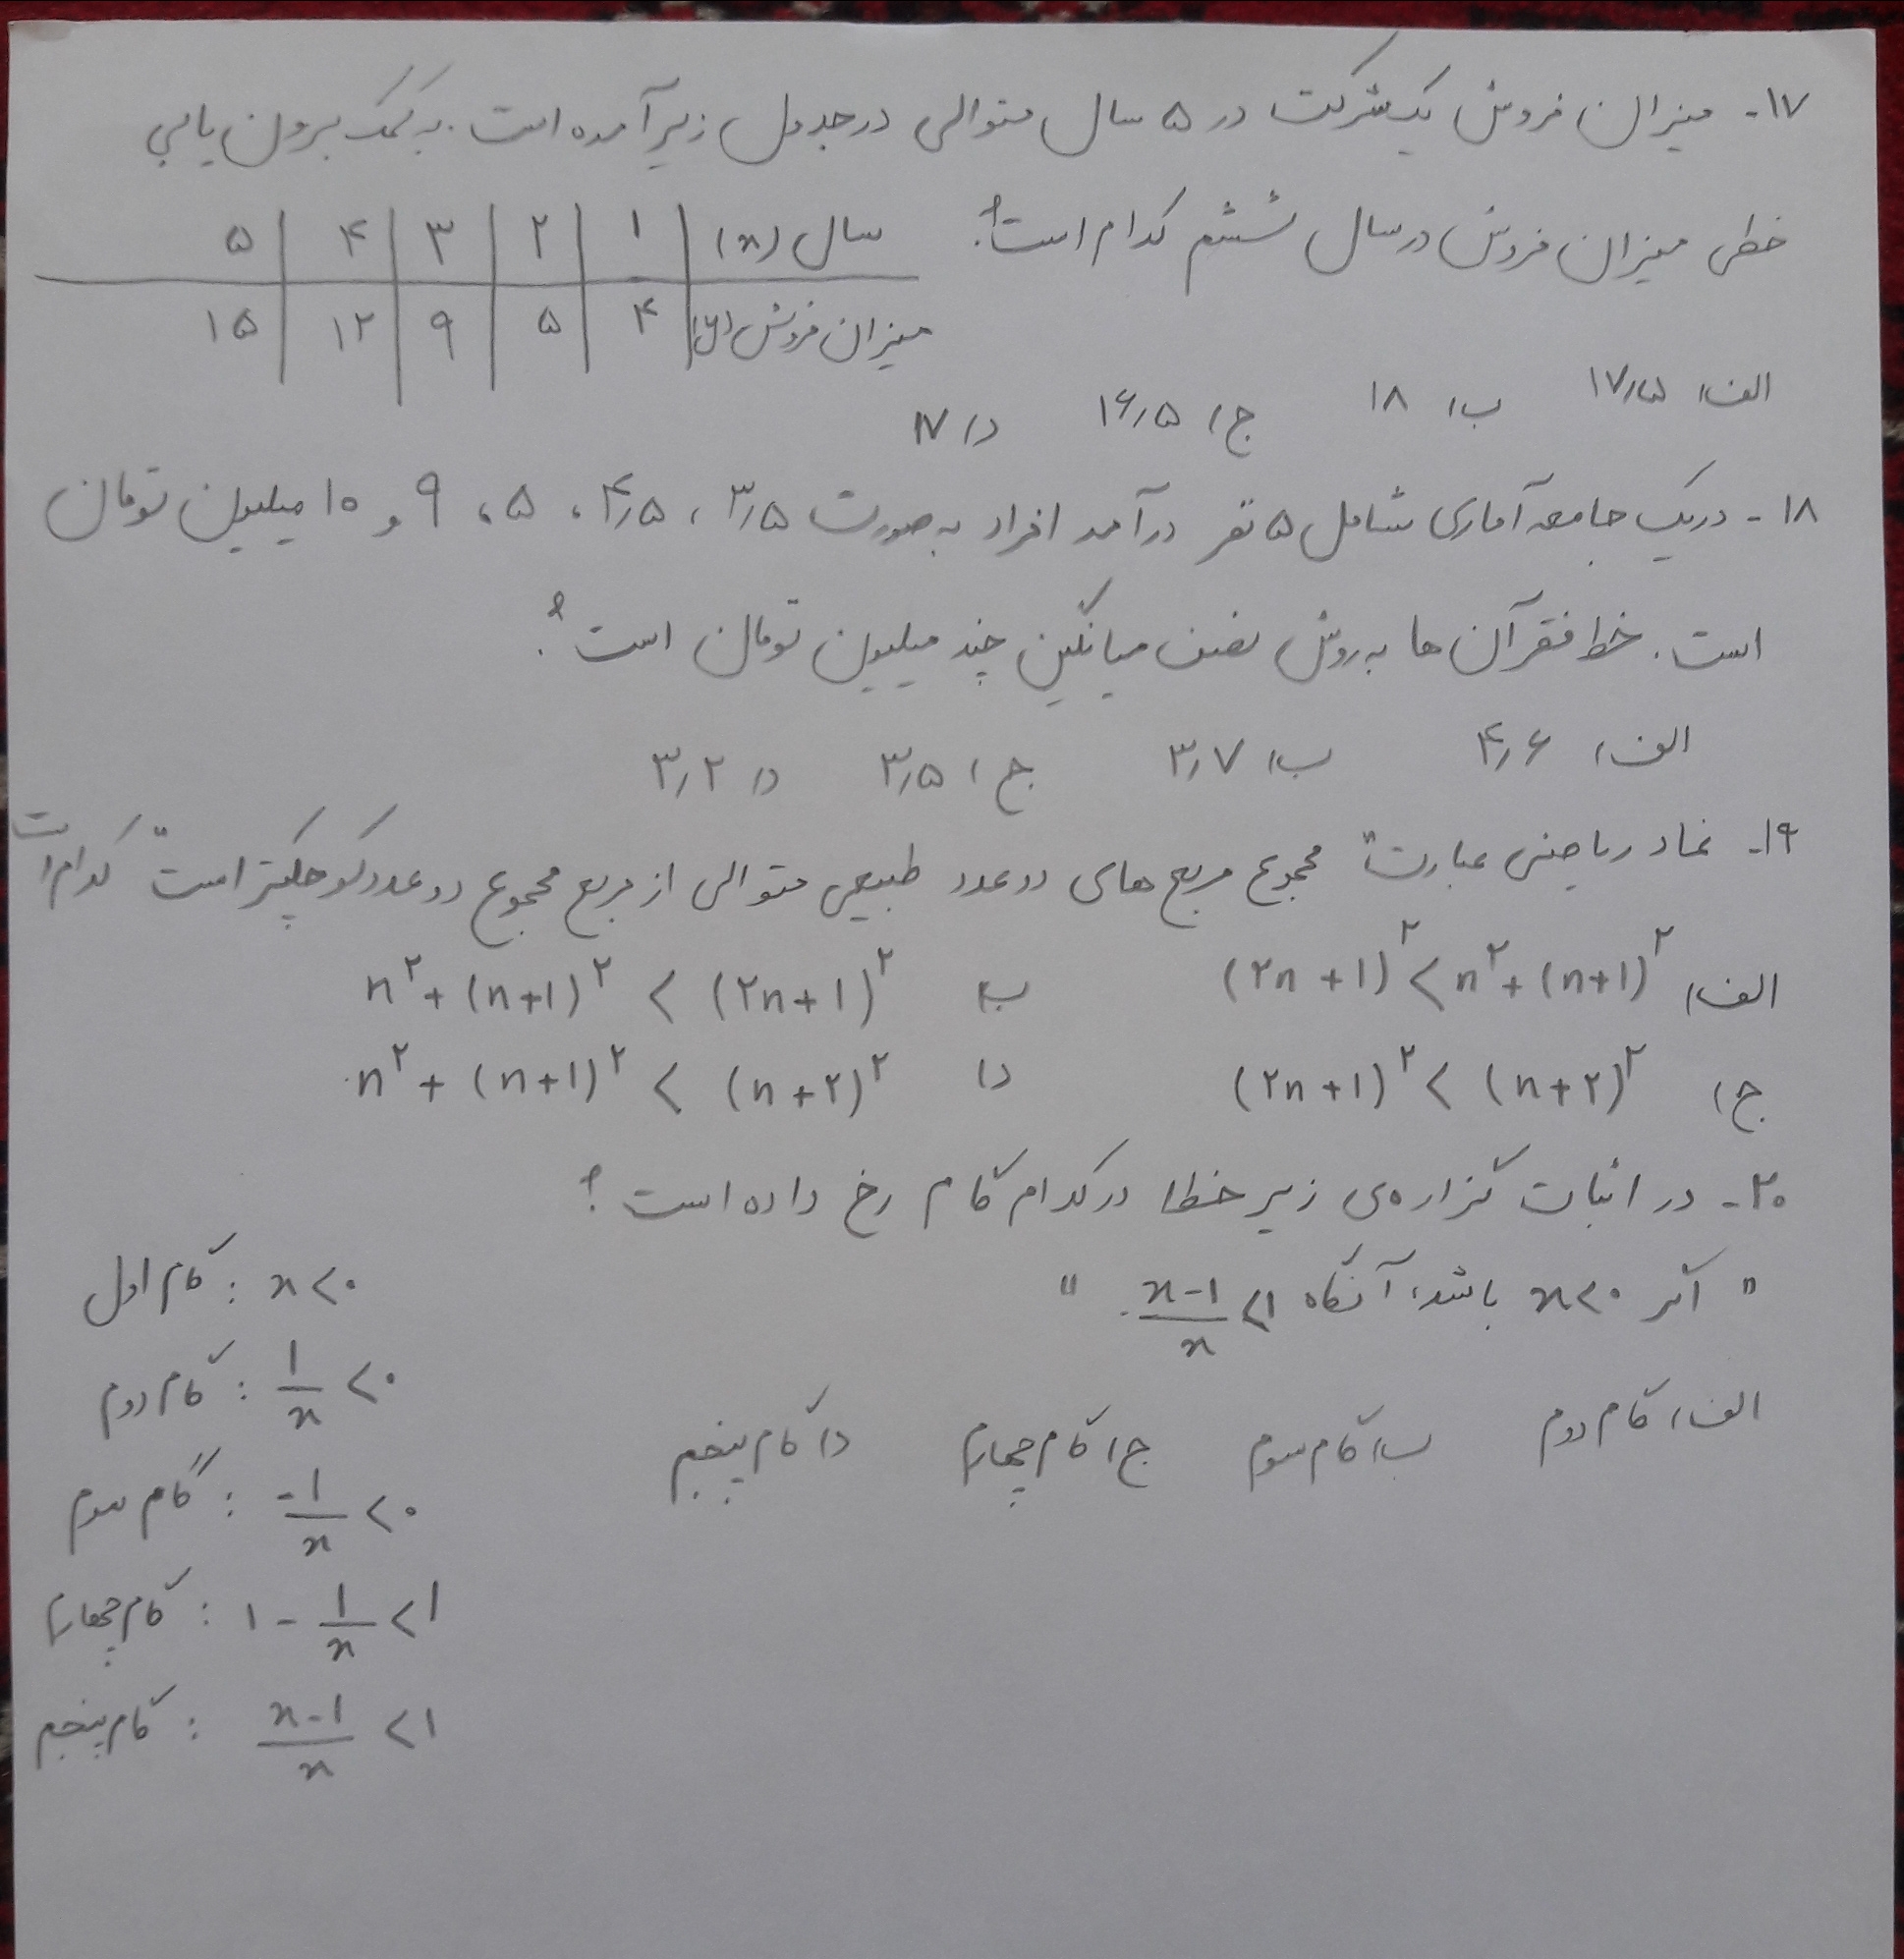 ۱۷- میزان فروش یک شرکت در ۵ سال متوالی در جدول زیر آمده است. به کمک برون یابی
خطی میزان فروش در سال ششم کدام است؟
سال (x) | ۱ | ۲ | ۳ | ۴ | ۵
میزان فروش (y) | ۴ | ۵ | ۹ | ۱۲ | ۱۵
الف) ۱۷٫۵ ب) ۱۸ ج) ۱۶٫۵ د) ۱۷
۱۸- در یک جامعه آماری شامل ۵ نفر درآمد افراد به صورت ۳٫۵ ، ۴٫۵ ، ۵ ، ۹ و ۱۰ میلیون تومان
است. خط فقر آن ها به روش نصف میانگین چند میلیون تومان است؟
الف) ۴٫۶ ب) ۳٫۷ ج) ۳٫۵ د) ۳٫۲
۱۹- نماد ریاضی عبارت " مجموع مربع های دو عدد طبیعی متوالی از مربع مجموع دو عدد کوچکتر است " کدام است
الف) (۲n + ۱)^۲ < n^۲ + (n+۱)^۲ ب) n^۲ + (n+۱)^۲ < (۲n + ۱)^۲
ج) (۲n + ۱)^۲ < (n + ۲)^۲ د) n^۲ + (n+۱)^۲ < (n + ۲)^۲
۲۰- در اثبات گزاره‌ی زیر خطا در کدام گام رخ داده است؟
" اگر x < ۰ باشد، آنگاه (x-۱)/x < ۱ "
الف) گام دوم ب) گام سوم ج) گام چهارم د) گام پنجم
گام اول : x < ۰
گام دوم : ۱/x < ۰
گام سوم : -۱/x < ۰
گام چهارم : ۱ - ۱/x < ۱
گام پنجم : (x-۱)/x < ۱